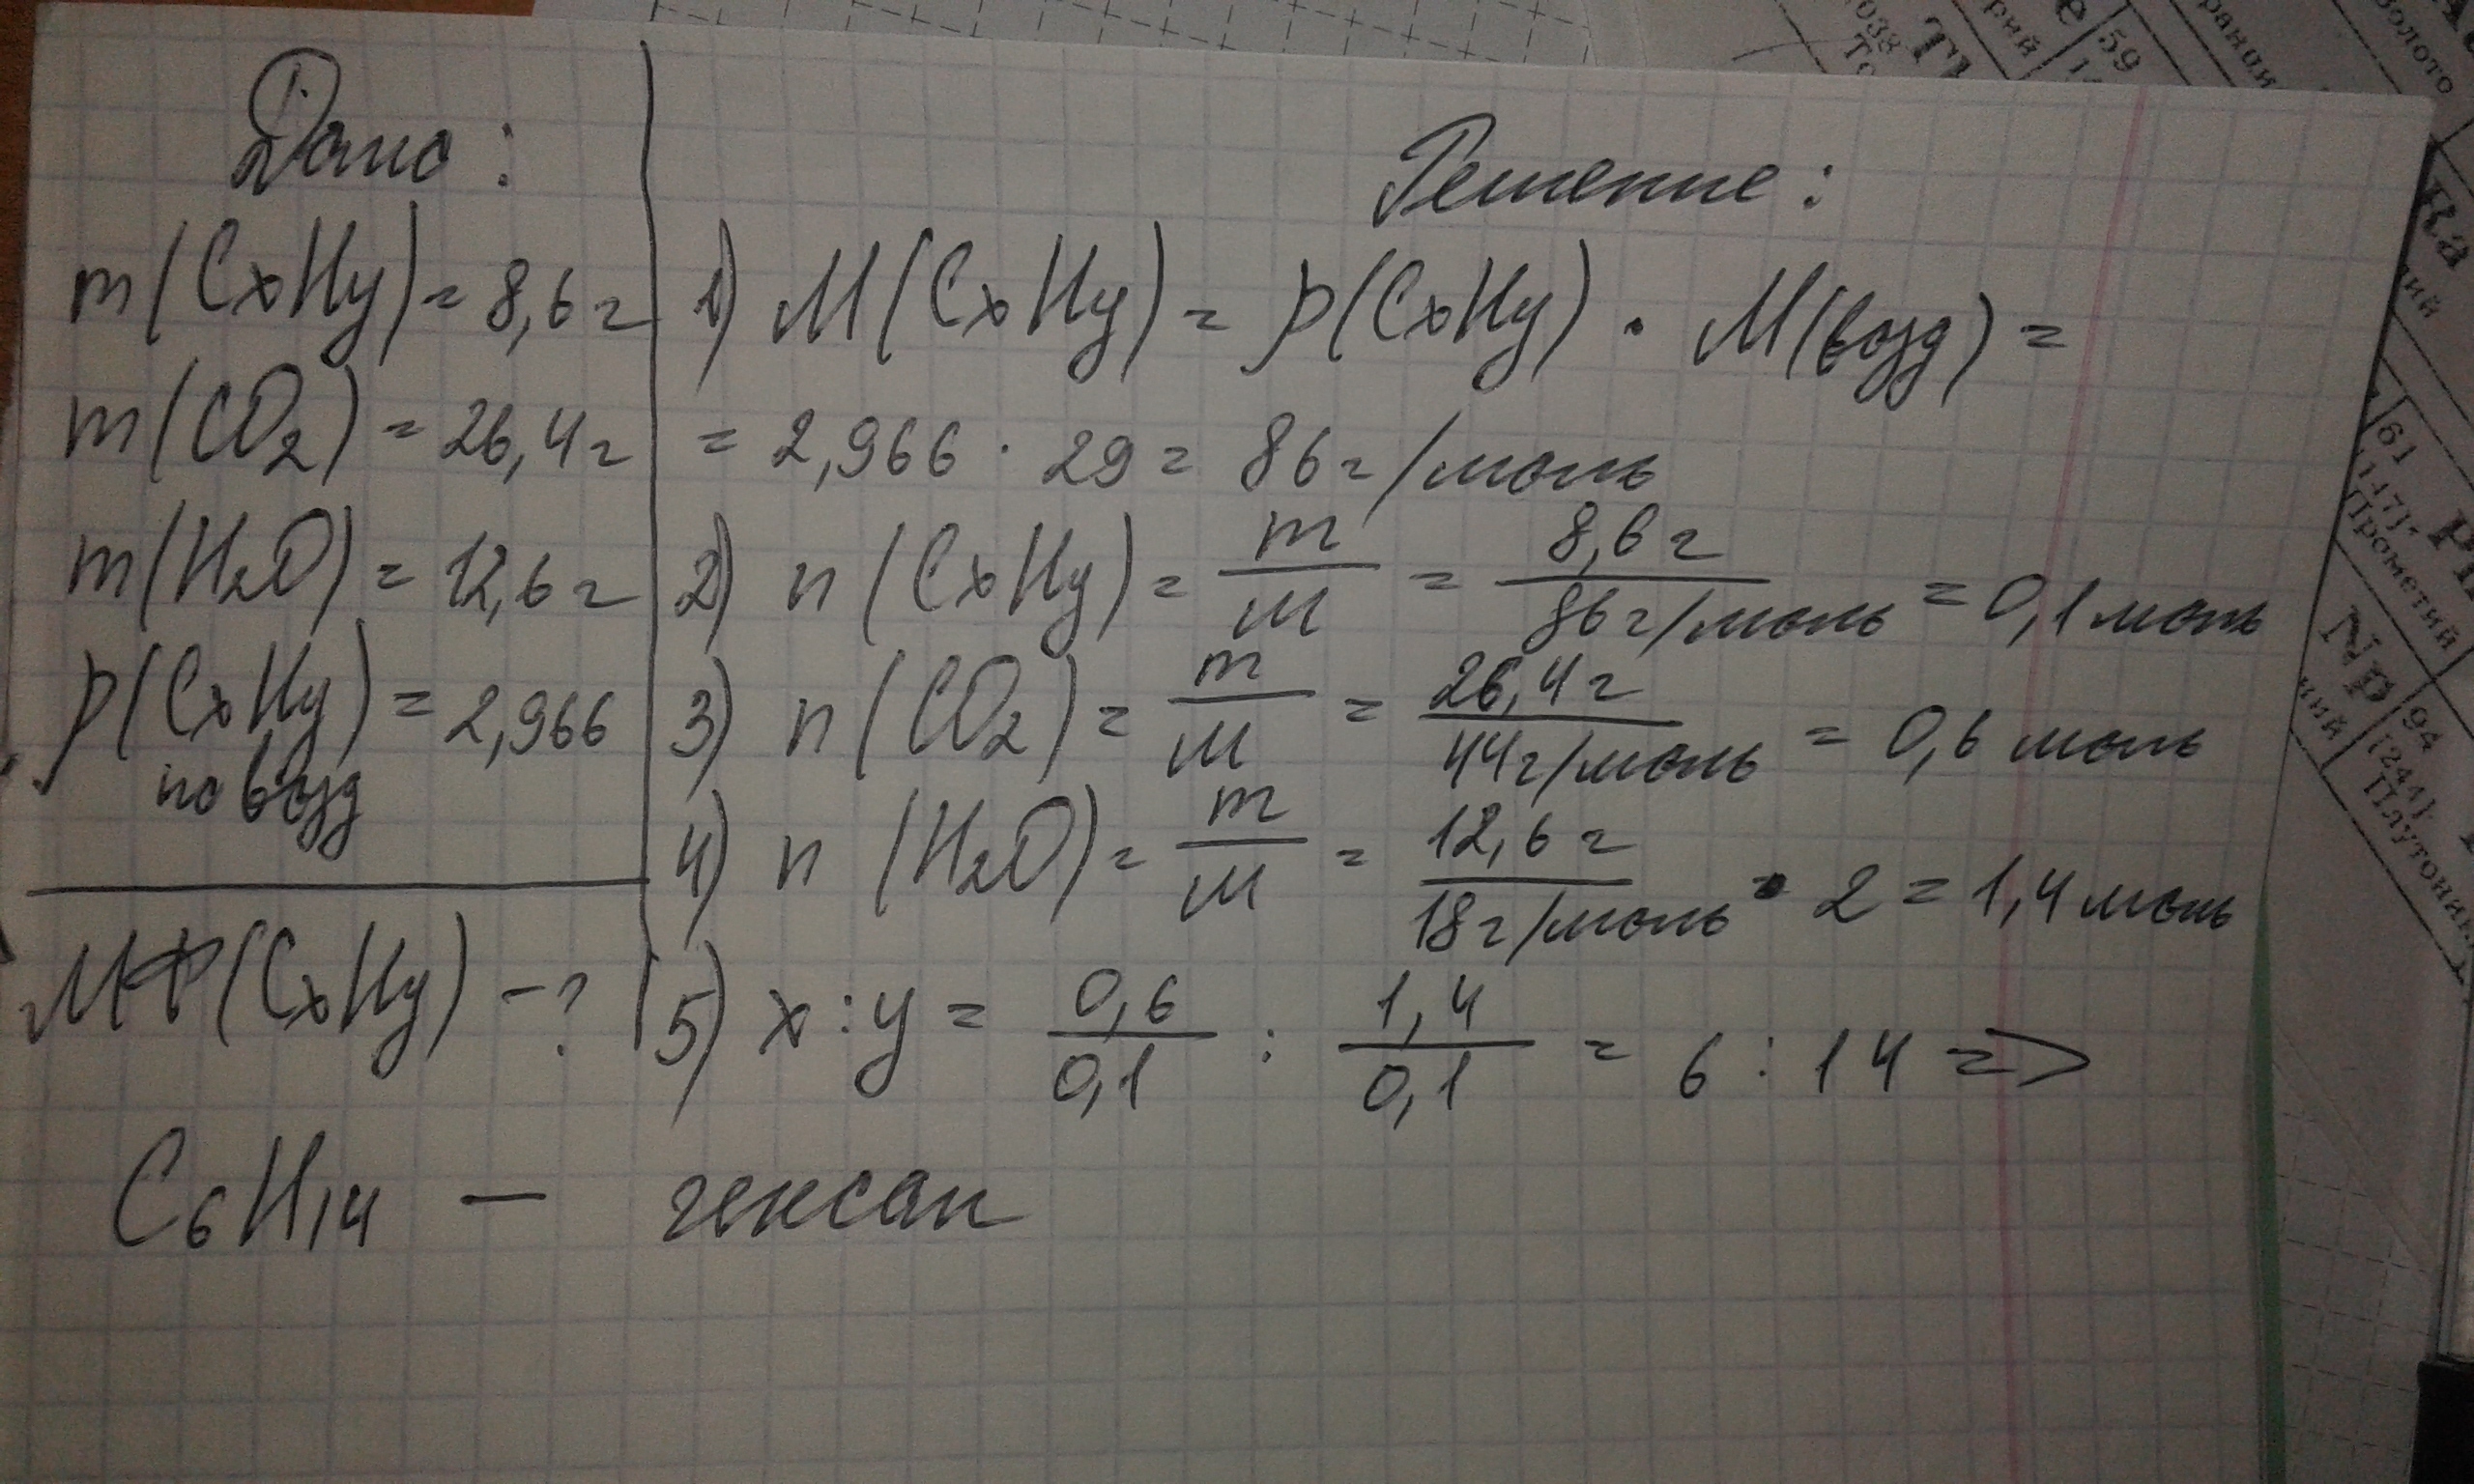 Дано:
m(CxHy) = 8,6 г
m(CO2) = 26,4 г
m(H2O) = 12,6 г
p(CxHy) = 2,966
по возд
МФ(CxHy) - ?
Решение:
1) M(CxHy) = p(CxHy) · M(возд) =
= 2,966 · 29 = 86 г/моль
2) n(CxHy) = m/M = 8,6 г/86 г/моль = 0,1 моль
3) n(CO2) = m/M = 26,4 г/44 г/моль = 0,6 моль
4) n(H2O) = m/M = 12,6 г/18 г/моль · 2 = 1,4 моль
5) x : y = 0,6/0,1 : 1,4/0,1 = 6 : 14 =>
C6H14 - гексан
59
61
[147]
Прометий
Np
94
[244]
Плутоний
Ra
золото